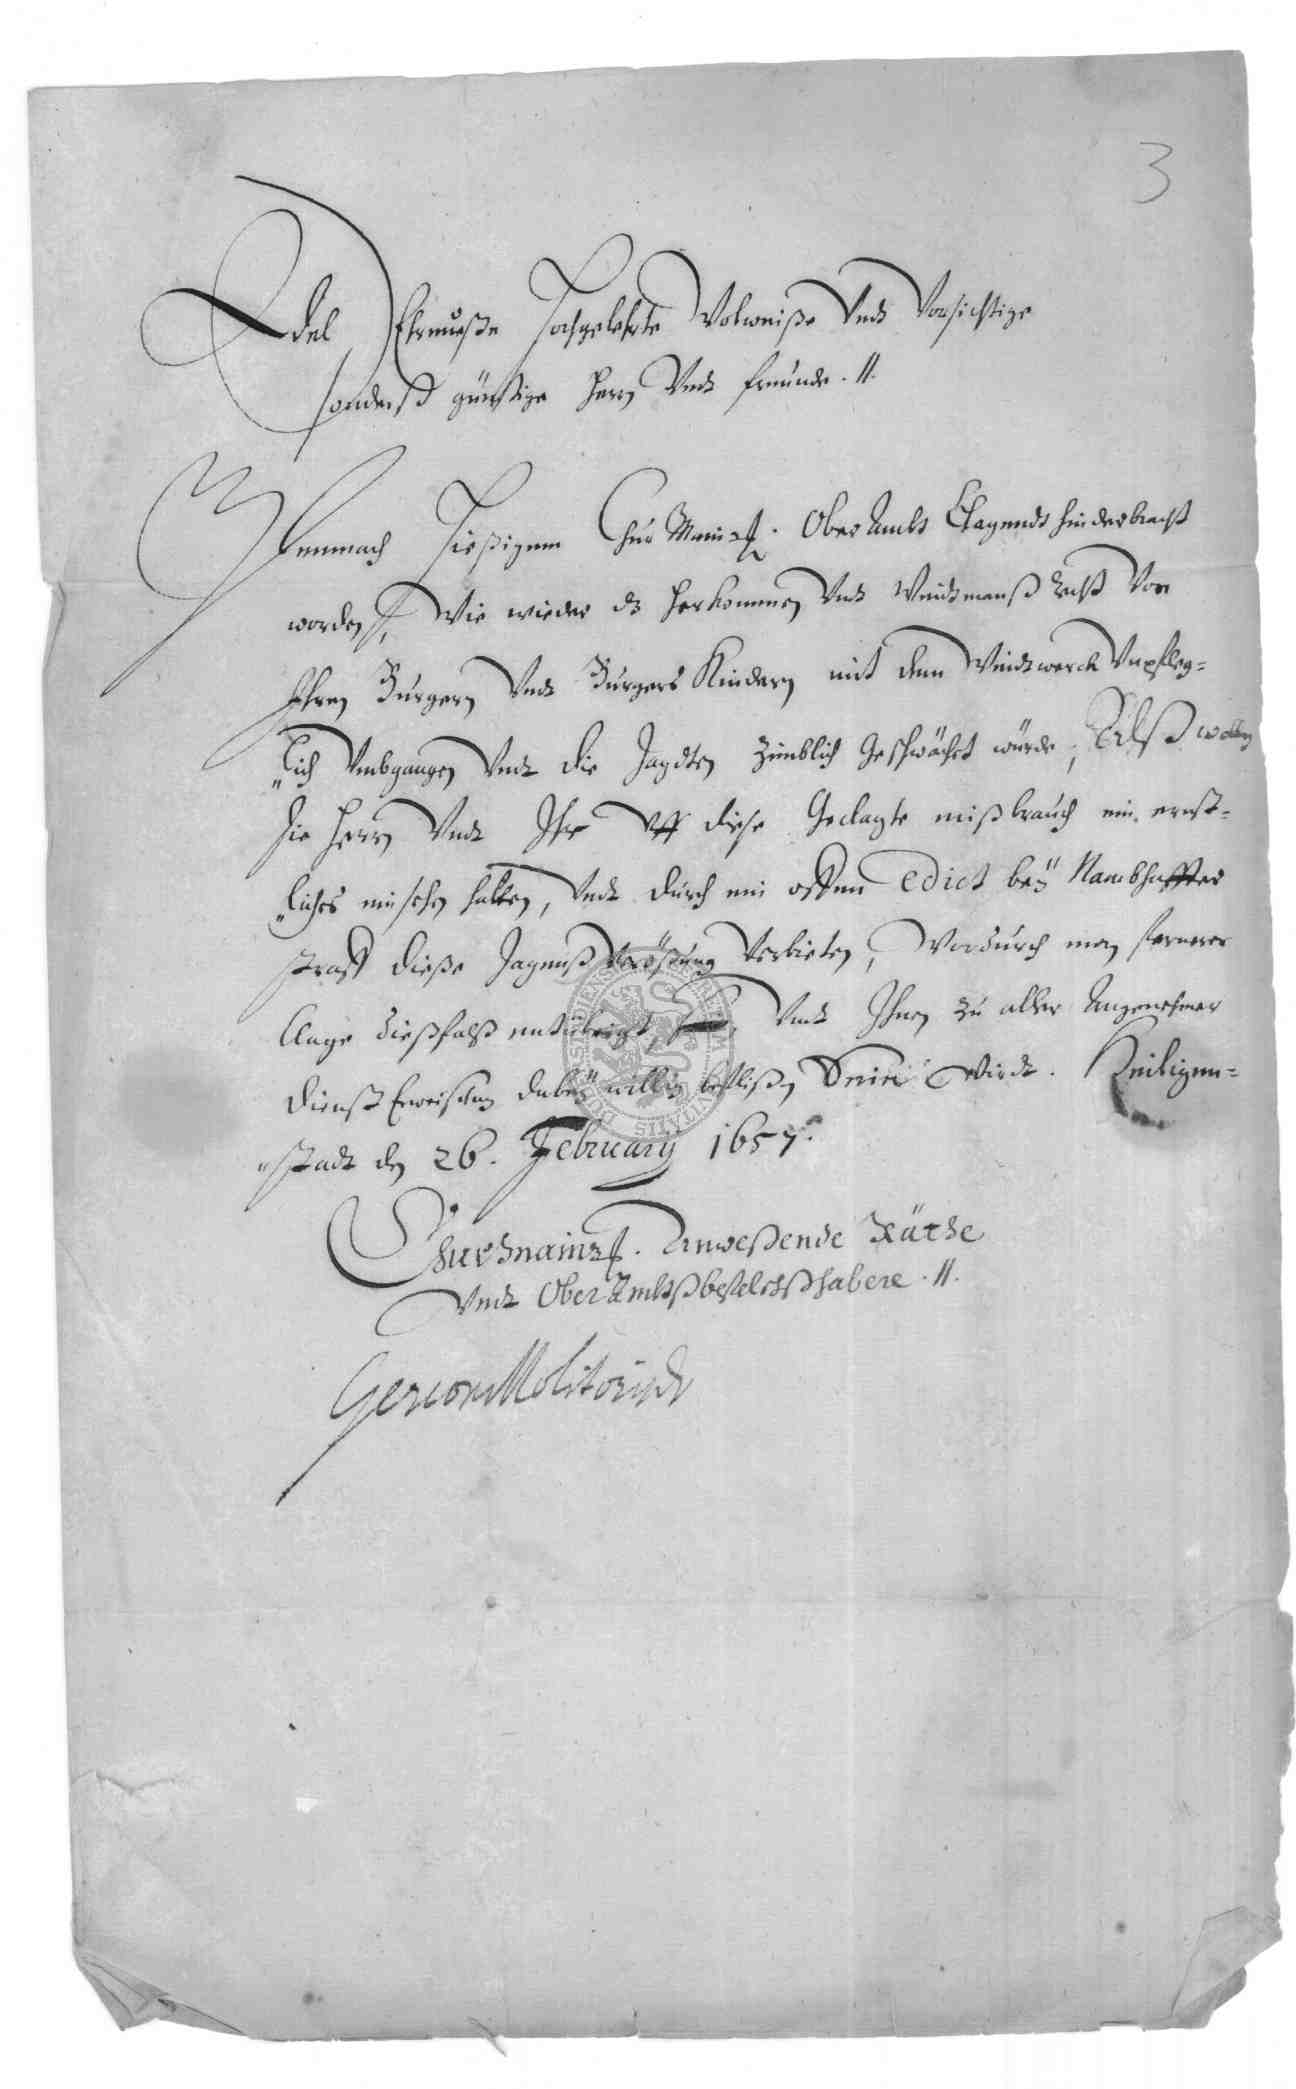 3
Edel Ehrnueste Hochgelehrte Wolweiße Undt Vorsichtige
sonderß günstige Herrn Undt freunde. //.
Demnach Hießigem Chur Maintz. Ober Ambt Clagendt hinderbracht
worden, Wie wieder dz Herkommen Undt Weidtmanß recht Von
Ihren Burgern Undt Burgers Kindern mit dem Weidtwerck Unpfleg-
lich Umbgangen Undt die Jagdten zimblich Geschwächet würde, Alß wollen
die Herrn Undt Ihr Uff diese Geclagte mißbrauch ein ernst-
liches einsehen haben, Undt durch ein offen edict beÿ Nambhaffter
straff dieße Jagens Verößung Verbieten, Wordurch man fernerer
Clage dießfalß entübrigt, Undt Ihnen zu aller Angenehmer
dienst Erweisung dabeÿ willig beflißen Sein Wirdt. Heiligen-
stadt den 26. February 1657.
ChurMaintz. Anweßende Räthe
Undt Ober Ambtßbevelchßhabere. //.
Molitor